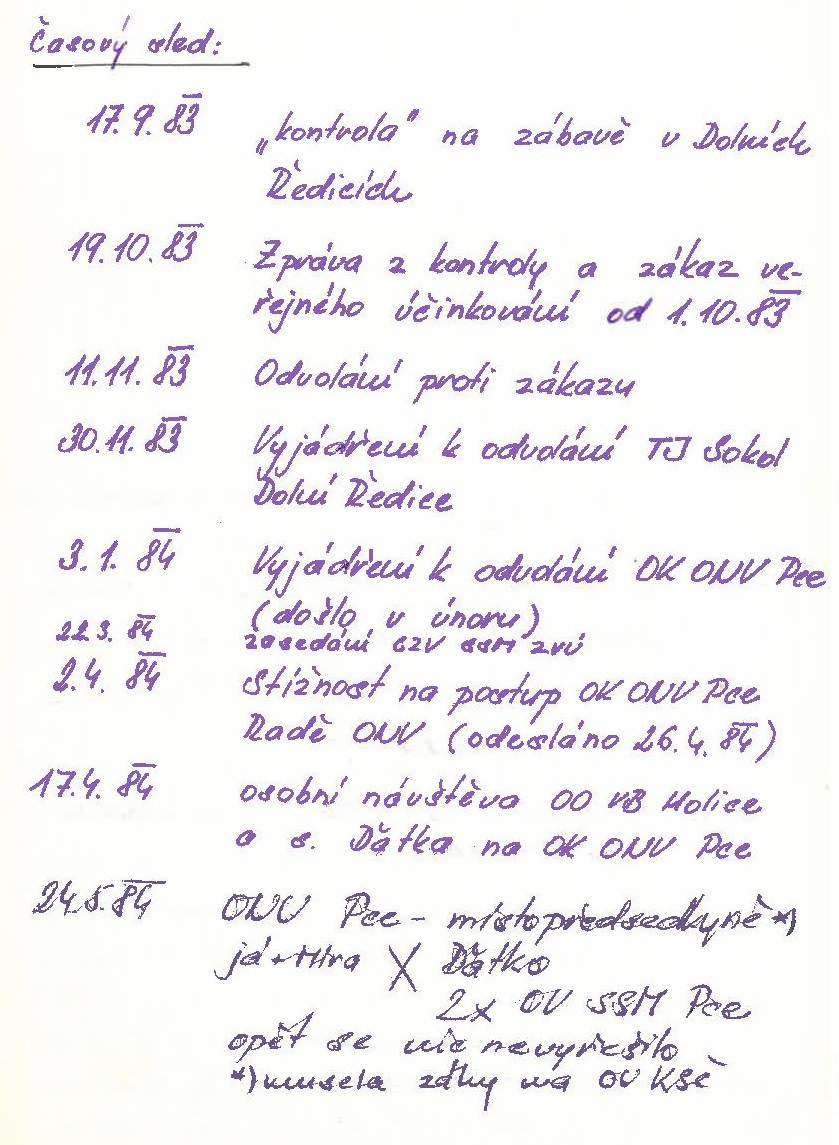 Časový sled:
17.9.83 „kontrola" na zábavě v Dolních
Ředicích
19.10.83 Zpráva z kontroly a zákaz ve-
řejného účinkování od 1.10.83
11.11.83 Odvolání proti zákazu
30.11.83 Vyjádření k odvolání TJ Sokol
Dolní Ředice
3.1.84 Vyjádření k odvolání OK ONV Pce
(došlo v únoru)
22.3.84 zasedání CZV SSM ZVÚ
2.4.84 Stížnost na postup OK ONV Pce
Radě ONV (odesláno 26.4.84)
17.4.84 osobní návštěva OO VB Holice
a s. Ďaťka na OK ONV Pce
24.5.84 ONV Pce - místopředsedkyně *)
já + Míra X Ďaťko
2x OV SSM Pce
opět se nic nevyřešilo
*) musela zdhy na OV KSČ